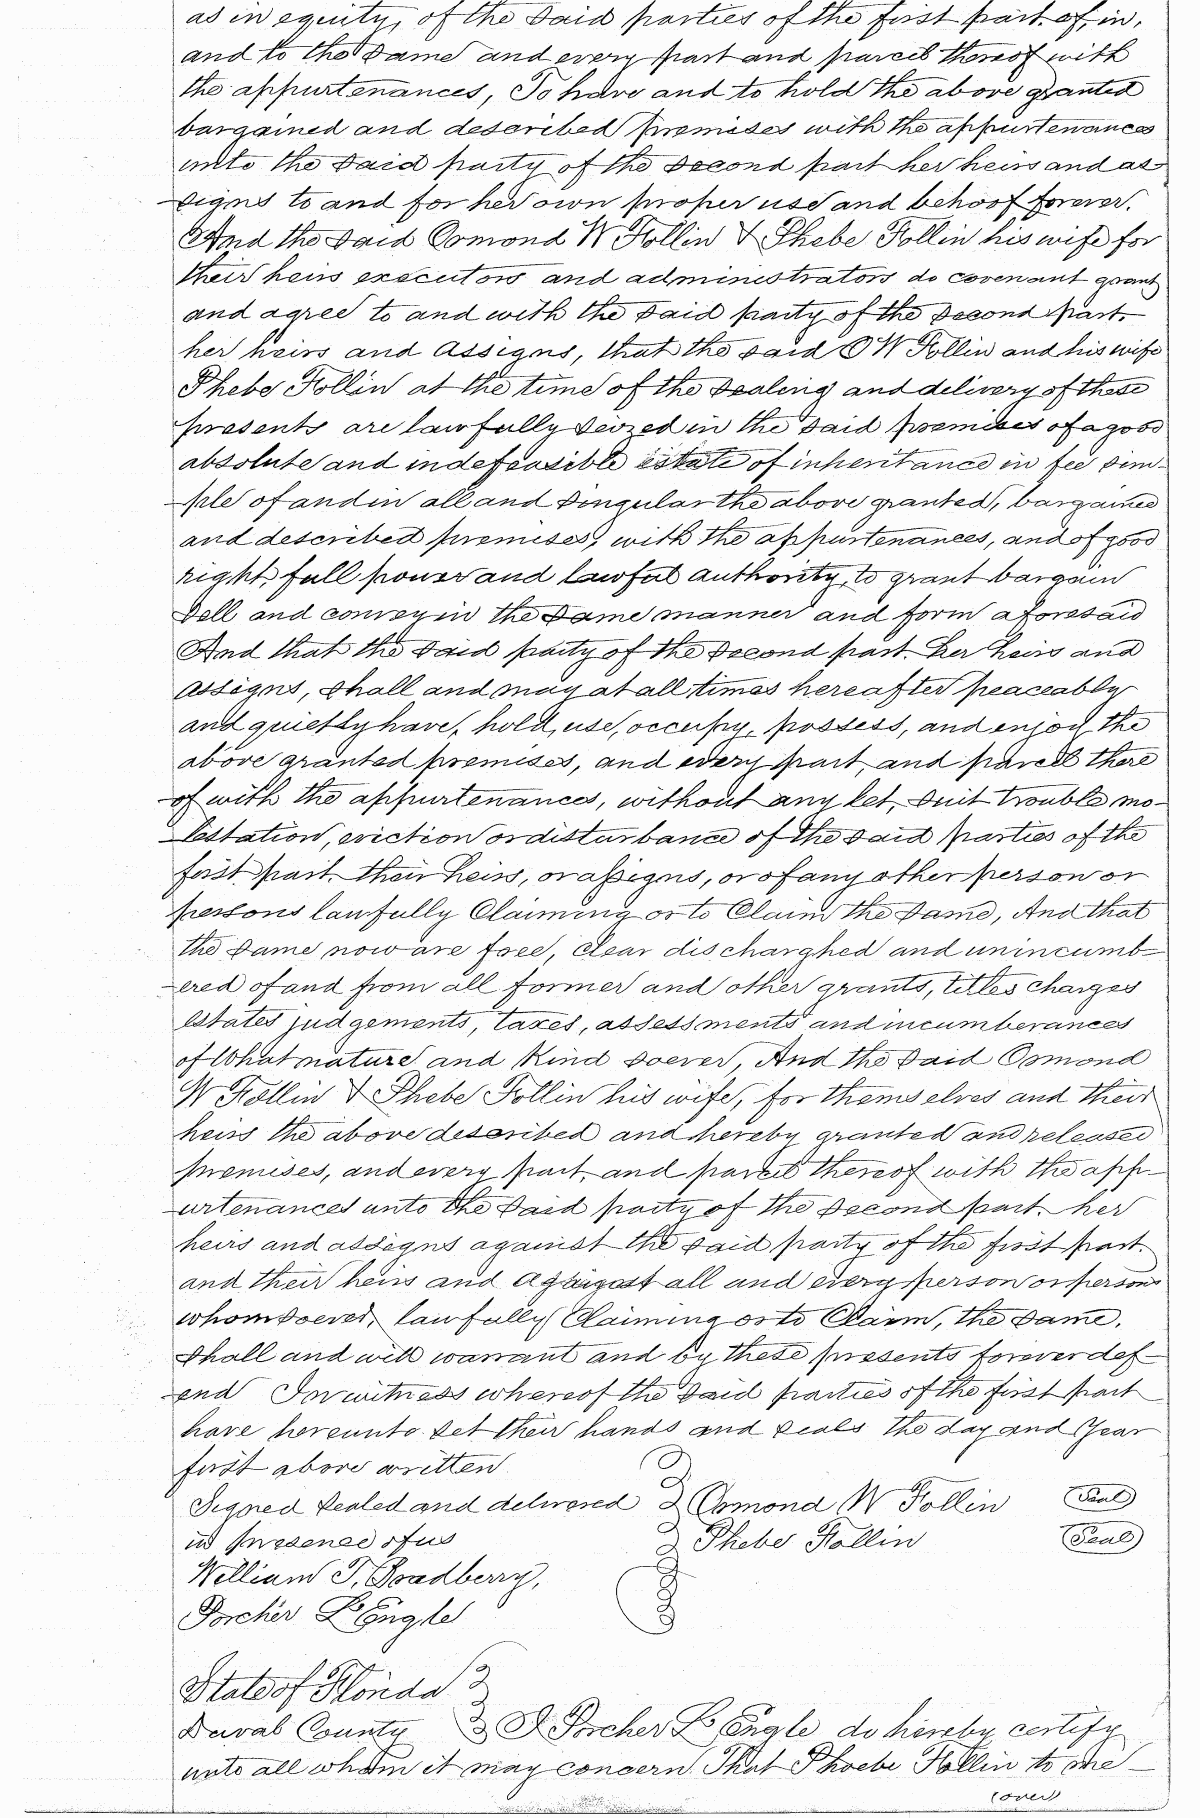 as in equity, of the said parties of the first part. of, in,
and to the same and every part and parcel thereof with
the appurtenances, To have and to hold the above granted
bargained and described premises with the appurtenances
unto the said party of the second part her heirs and as-
-signs to and for her own proper use and behoof forever.
And the said Osmond W Follin & Phebe Follin his wife for
their heirs executors and administrators do covenant grant
and agree to and with the said party of the second part.
her heirs and Assigns, that the said O W Follin and his wife
Phebe Follin at the time of the sealing and delivery of these
presents are lawfully seized in the said premises of a good
absolute and indefeasible estate of inheritance in fee sim-
-ple of and in all and singular the above granted, bargained
and described premises, with the appurtenances, and of good
right, full power and lawful authority, to grant bargain
sell and convey in the same manner and form aforesaid
And that the said party of the second part. her heirs and
assigns, shall and may at all times hereafter peaceably
and quietly have, hold, use, occupy, possess, and enjoy the
above granted premises, and every part, and parcell there
of with the appurtenances, without any let, suit trouble mo-
-lestation, eviction or disturbance of the said parties of the
first part. their heirs, or assigns, or of any other person or
persons lawfully Claiming or to Claim the same, And that
the same now are free, clear discharghed and unincumb-
-ered of and from all former and other grants, titles charges
estates judgements, taxes, assessments and incumberances
of What nature and Kind soever, And the said Osmond
W Follin & Phebe Follin his wife, for themselves and their
heirs the above described and hereby granted and released
premises, and every part, and parcel thereof with the app-
-urtenances unto the said party of the second part. her
heirs and assigns against the said party of the first part.
and their heirs and against all and every person or persons
whomsoever, lawfully Claiming or to Claim, the same,
shall and will warrant and by these presents forever def-
-end In witness whereof the said parties of the first part
have hereunto set their hands and seals the day and Year
first above written
Signed sealed and delivered Osmond W Follin Seal
in presence of us Phebe Follin Seal
William T. Bradberry,
Porcher L'Engle
State of Florida
Duval County I Porcher L'Engle do hereby certify
unto all whom it may concern That Phoebe Follin to me
(over)